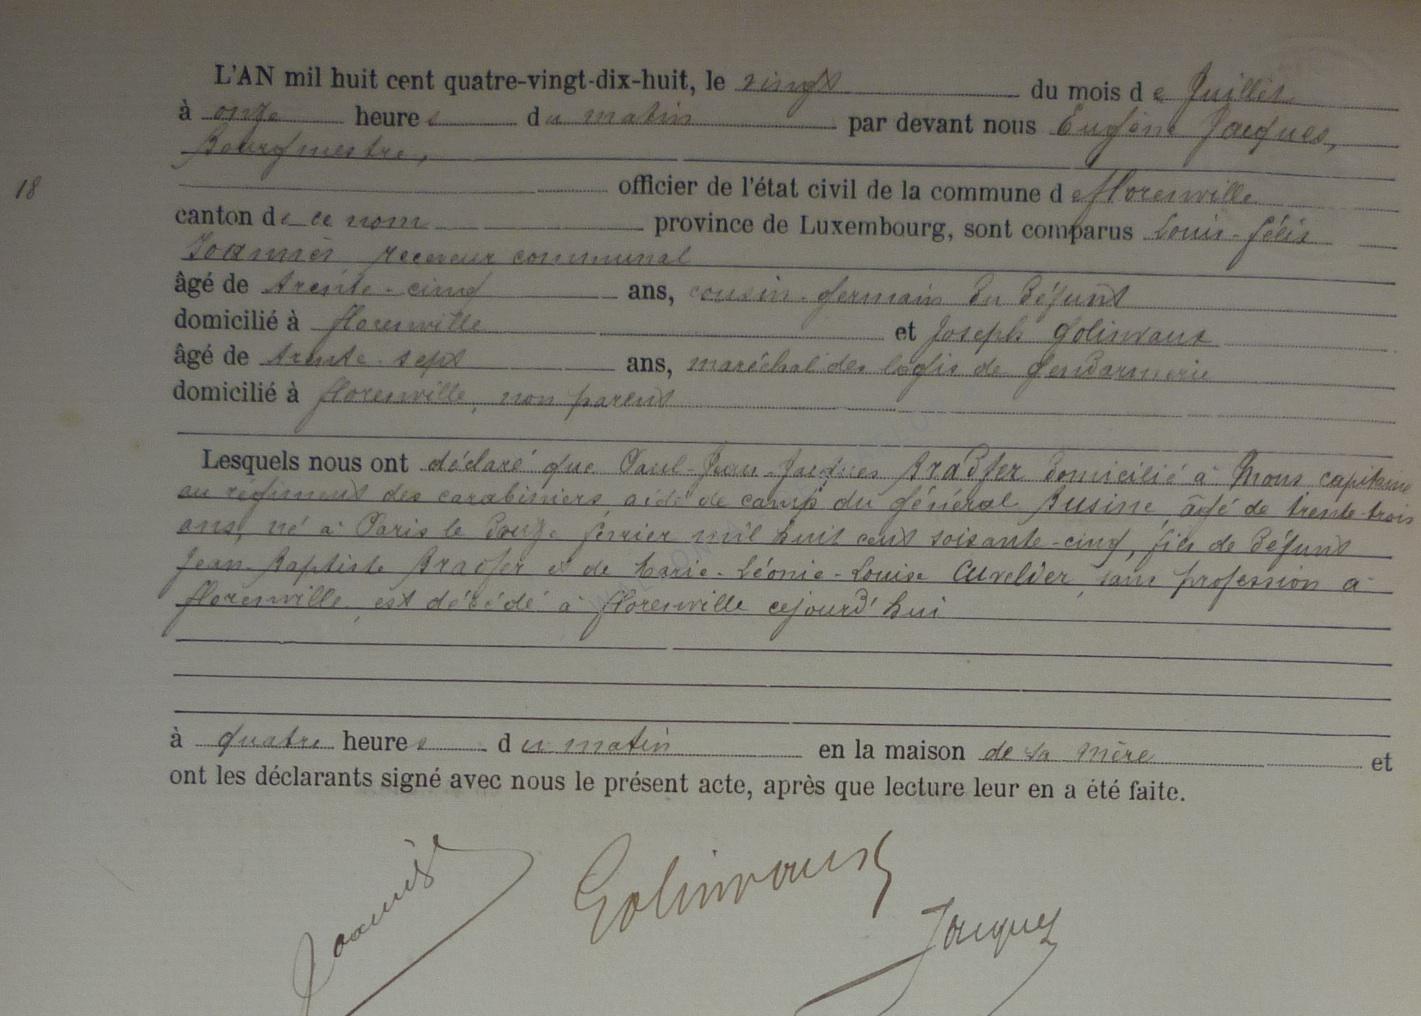 L'AN mil huit cent quatre-vingt-dix-huit, le vingt du mois de Juillet
à onze heures du matin par devant nous Eugène Jacques,
Bourgmestre,
18
officier de l'état civil de la commune de florenville
canton de ce nom province de Luxembourg, sont comparus Louis-Félix
Joannès receveur communal
âgé de trente-cinq ans, cousin-germain du défunt
domicilié à florenville et Joseph Golinvaux
âgé de trente-sept ans, maréchal des logis de gendarmerie
domicilié à florenville, non parent
Lesquels nous ont déclaré que Paul-Jean-Jacques Bradfer domicilié à Mons capitaine
au régiment des carabiniers, aide de camp du général Busine, âgé de trente-trois
ans, né à Paris le douze février mil huit cent soixante-cinq, fils de défunt
Jean-Baptiste Bradfer et de Marie-Léonie-Louise Cuvelier, sans profession à
florenville, est décédé à florenville cejourd'hui
à quatre heures du matin en la maison de sa mère et
ont les déclarants signé avec nous le présent acte, après que lecture leur en a été faite.
Joannès
Golinvaux
Jacques